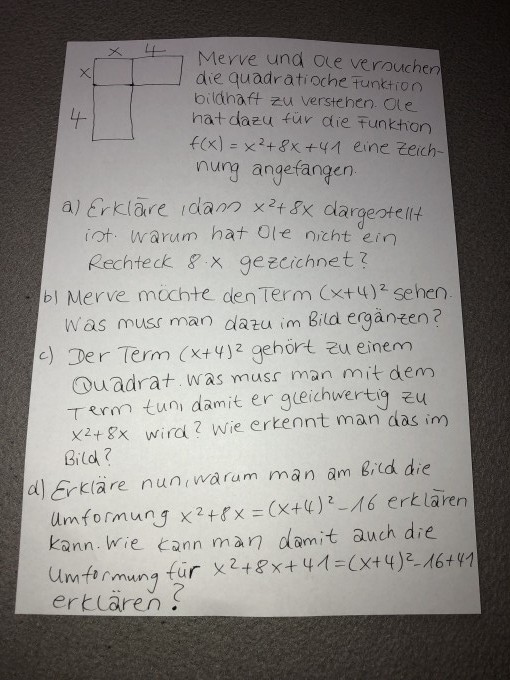 x 4
x
4
Merve und Ole versuchen
die quadratische Funktion
bildhaft zu verstehen. Ole
hat dazu für die Funktion
f(x) = x²+8x+41 eine Zeich-
nung angefangen.
a) Erkläre, dass x²+8x dargestellt
ist. Warum hat Ole nicht ein
Rechteck 8·x gezeichnet?
b) Merve möchte den Term (x+4)² sehen.
Was muss man dazu im Bild ergänzen?
c) Der Term (x+4)² gehört zu einem
Quadrat. Was muss man mit dem
Term tun, damit er gleichwertig zu
x²+8x wird? Wie erkennt man das im
Bild?
d) Erkläre nun, warum man am Bild die
Umformung x²+8x=(x+4)²-16 erklären
kann. Wie kann man damit auch die
Umformung für x²+8x+41=(x+4)²-16+41
erklären?